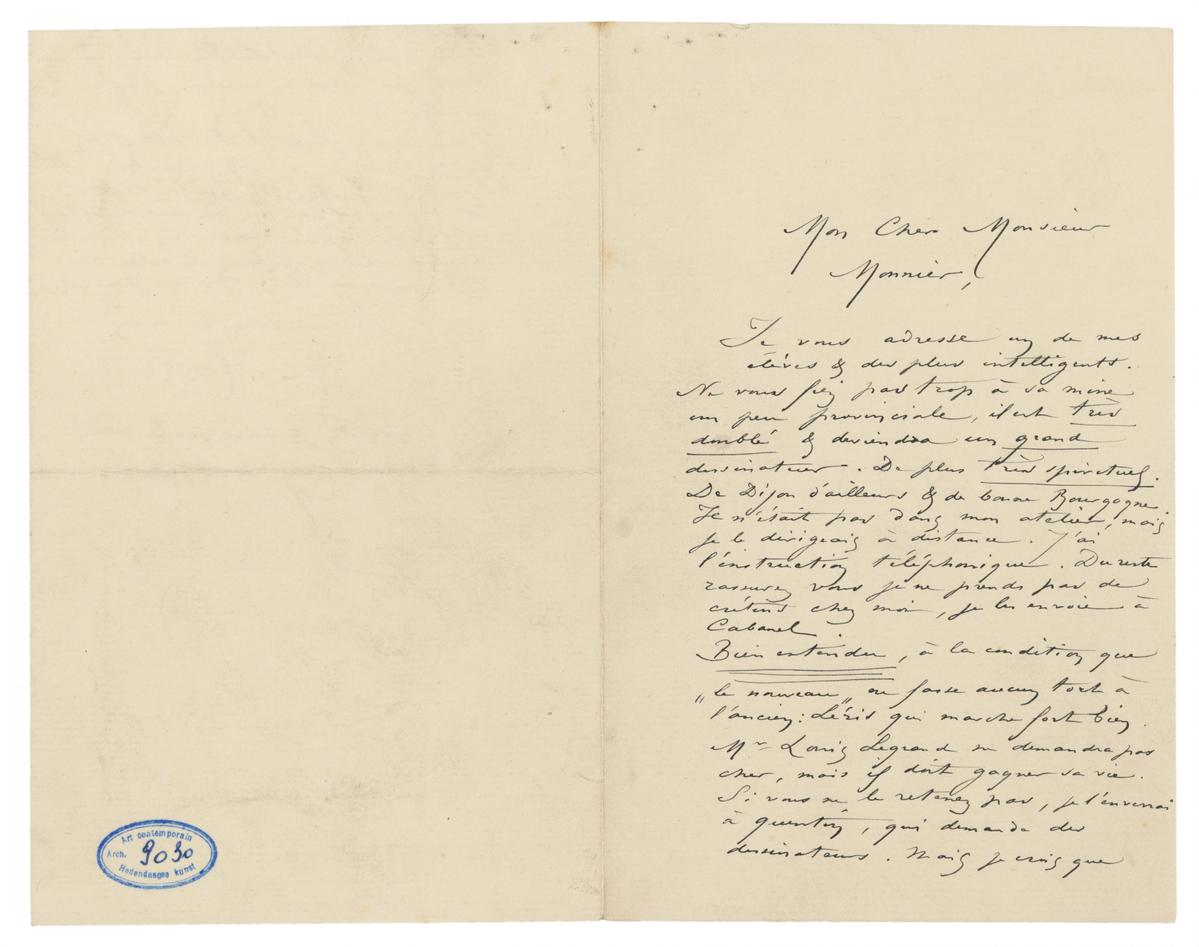 Art contemporain
Arch. 9030
Hedendaagse kunst
Mon Cher Monsieur
Monnier,
Je vous adresse un de mes
élèves & des plus intelligents.
Ne vous fiez pas trop à sa mine
un peu provinciale, il est très
doublé & deviendra un grand
dessinateur. De plus très spirituel.
De Dijon d'ailleurs & de bonne Bourgogne.
Je n'était pas dans mon atelier, mais
je le dirigeais à distance. J'ai
l'instruction téléphonique. Du reste
rassurez vous je ne prends pas de
crétins chez moi, je les envoie à
Cabanel.
Bien entendu, à la condition que
„le nouveau„ ne fasse aucun tort à
l'ancien: Lézis qui marche fort bien.
Mr Louis Legrand ne demandra pas
cher, mais il doit gagner sa vie.
Si vous ne le retenez pas, je l'enverrai
à Quentin, qui demande des
dessinateurs. Mais je crois que